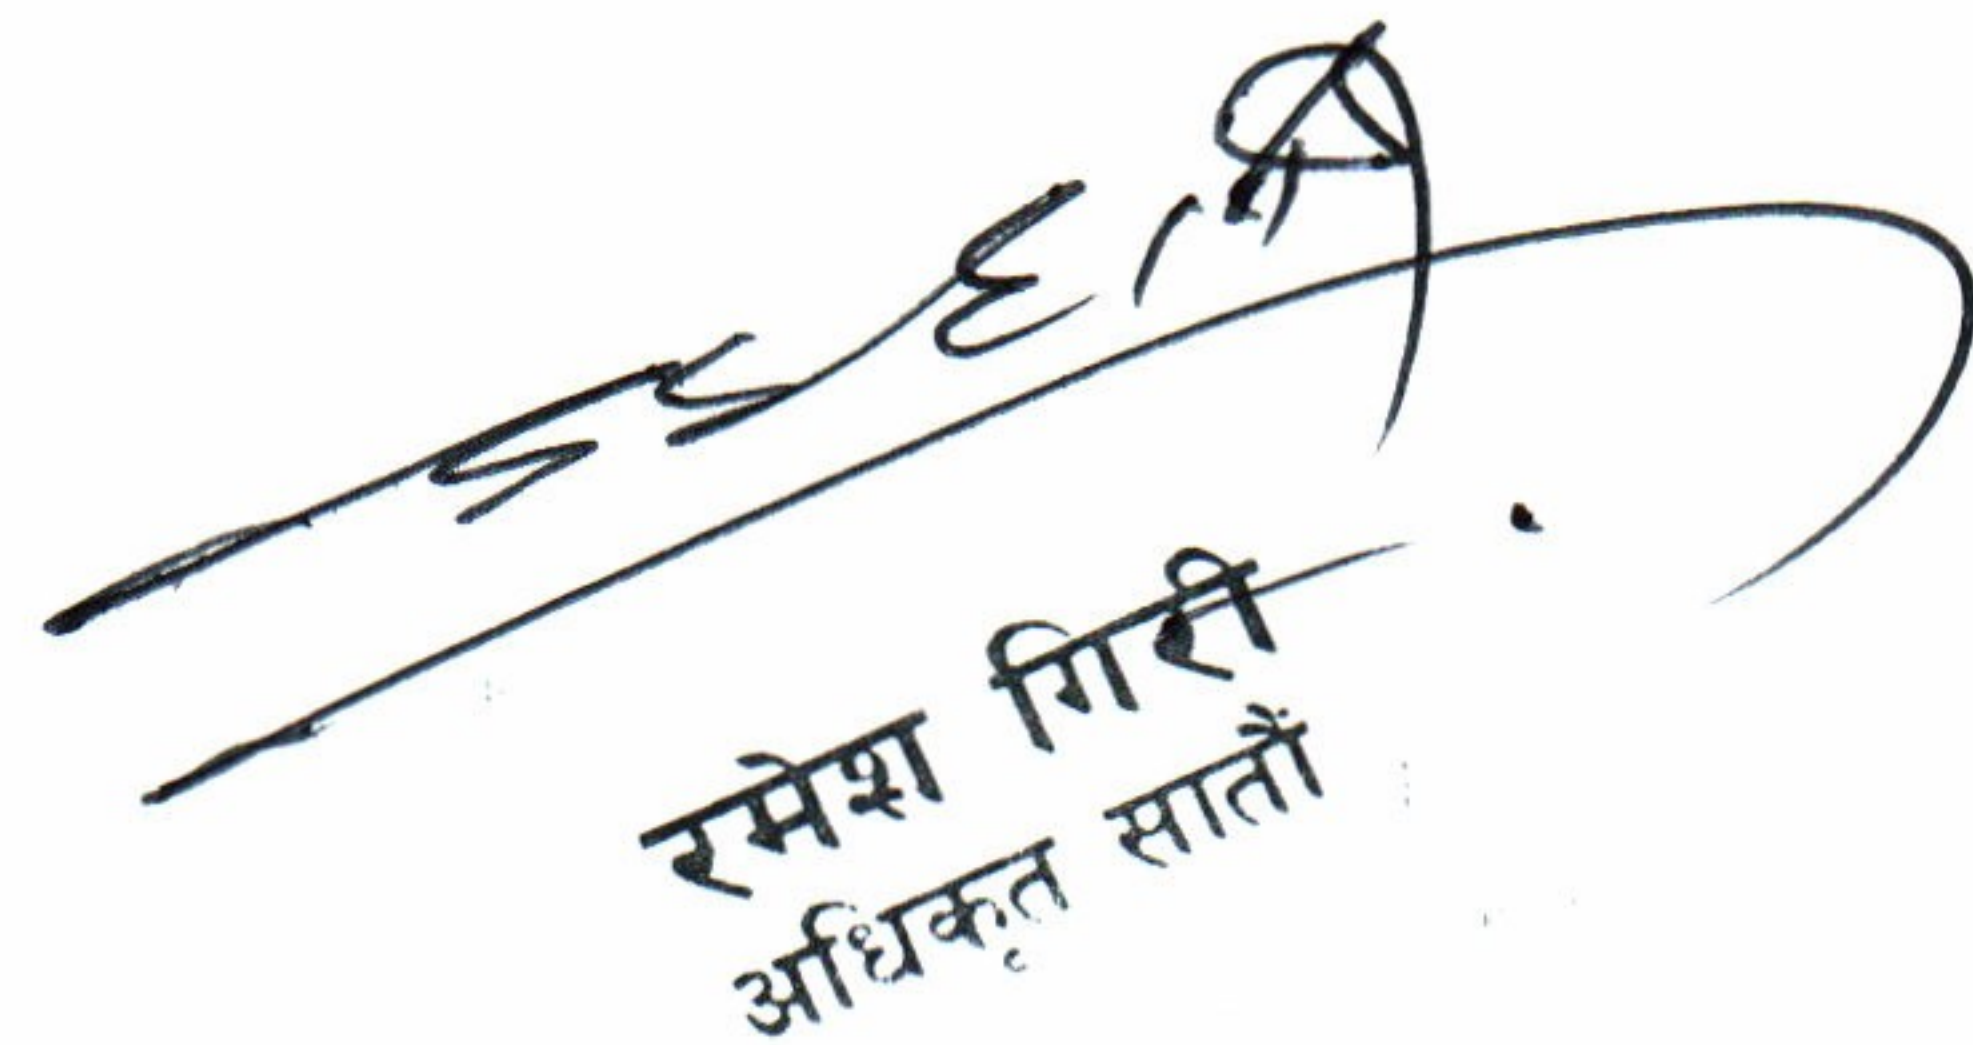 रमेश गिरी
अधिकृत सातौं